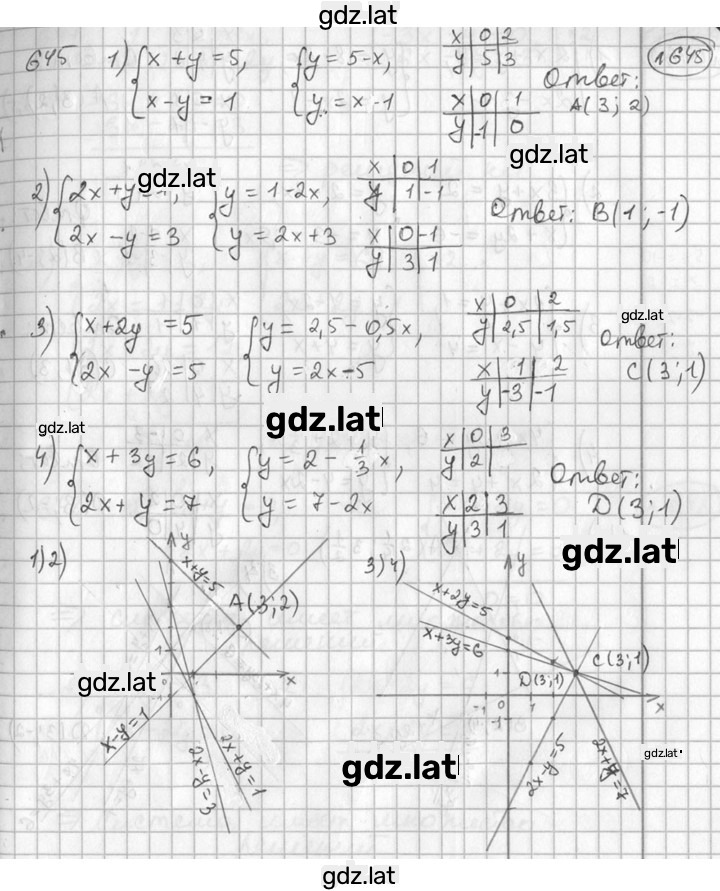 gdz.lat
645 1) { x + y = 5, x - y = 1 { y = 5 - x, y = x - 1
x | 0 | 2
y | 5 | 3
x | 0 | 1
y | -1 | 0
Ответ: A(3; 2)
1645
gdz.lat
gdz.lat
2) { 2x + y = 1, 2x - y = 3 { y = 1 - 2x, y = 2x + 3
x | 0 | 1
y | 1 | -1
x | 0 | -1
y | 3 | 1
Ответ: B(1; -1)
gdz.lat
3) { x + 2y = 5 2x - y = 5 { y = 2,5 - 0,5x, y = 2x - 5
x | 0 | 2
y | 2,5 | 1,5
x | 1 | 2
y | -3 | -1
Ответ: C(3; 1)
gdz.lat
gdz.lat
4) { x + 3y = 6, 2x + y = 7 { y = 2 - 1/3 x, y = 7 - 2x
x | 0 | 3
y | 2 |
x | 2 | 3
y | 3 | 1
Ответ: D(3; 1)
gdz.lat
1) 2)
y
x + y = 5
A(3; 2)
1
x
x - y = 1
2x - y = 3
2x + y = 1
gdz.lat
3) 4)
y
x + 2y = 5
x + 3y = 6
C(3; 1)
D(3; 1)
1
-1 0 1
-1
x
2x - y = 5
2x + y = 7
gdz.lat
gdz.lat
gdz.lat